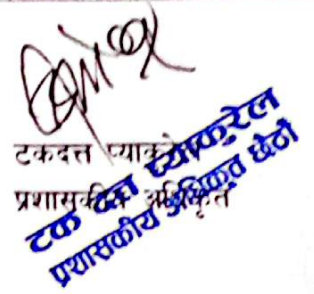 टकदत्त प्याकुरेल
प्रशासकीय अधिकृत
टक दत्त प्याकुरेल
प्रशासकीय अधिकृत छैठौं